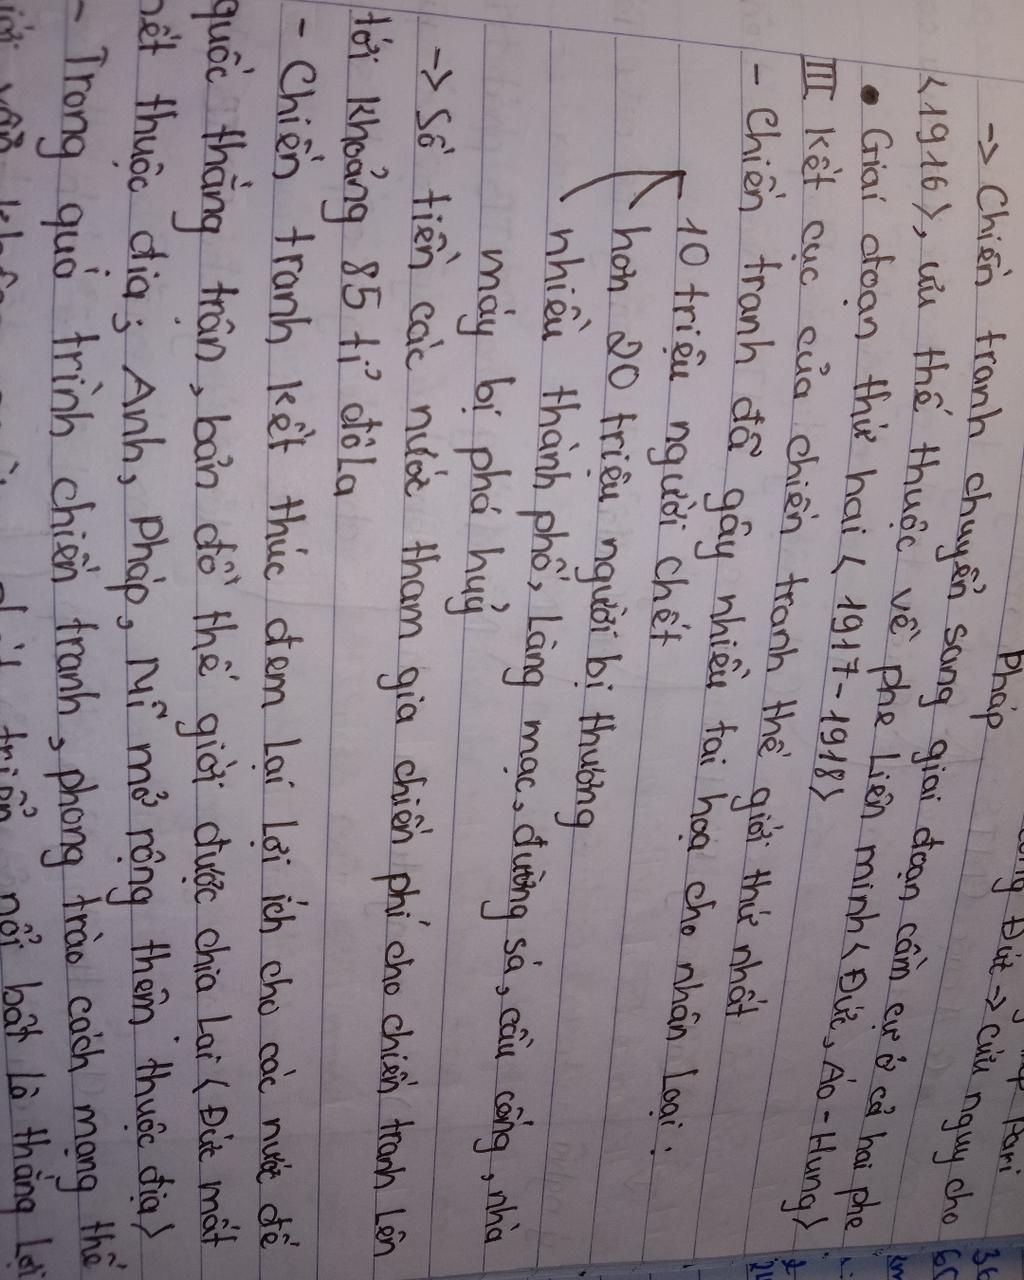 Pari
Đức -> cứu nguy cho
Pháp
-> Chiến tranh chuyển sang giai đoạn cầm cự ở cả hai phe
<1916>, ưu thế thuộc về phe Liên minh <Đức, Áo-Hung>
• Giai đoạn thứ hai <1917-1918>
III kết cục của chiến tranh thế giới thứ nhất
- Chiến tranh đã gây nhiều tai hoạ cho nhân Loại:
10 triệu người chết
hơn 20 triệu người bị thương
nhiều thành phố, Làng mạc, đường sá, cầu cống, nhà
máy bị phá huỷ
-> Số tiền các nước tham gia chiến phí cho chiến tranh Lên
tới khoảng 85 tỉ đô La
- Chiến tranh kết thúc đem Lại Lợi ích cho các nước đế
quốc thắng trận, bản đồ thế giới được chia Lại <Đức mất
hết thuộc địa; Anh, Pháp, Mĩ mở rộng thêm thuộc địa>
- Trong quá trình chiến tranh, phong trào cách mạng thế
giới vẫn triển nổi bật Là thắng Lợi